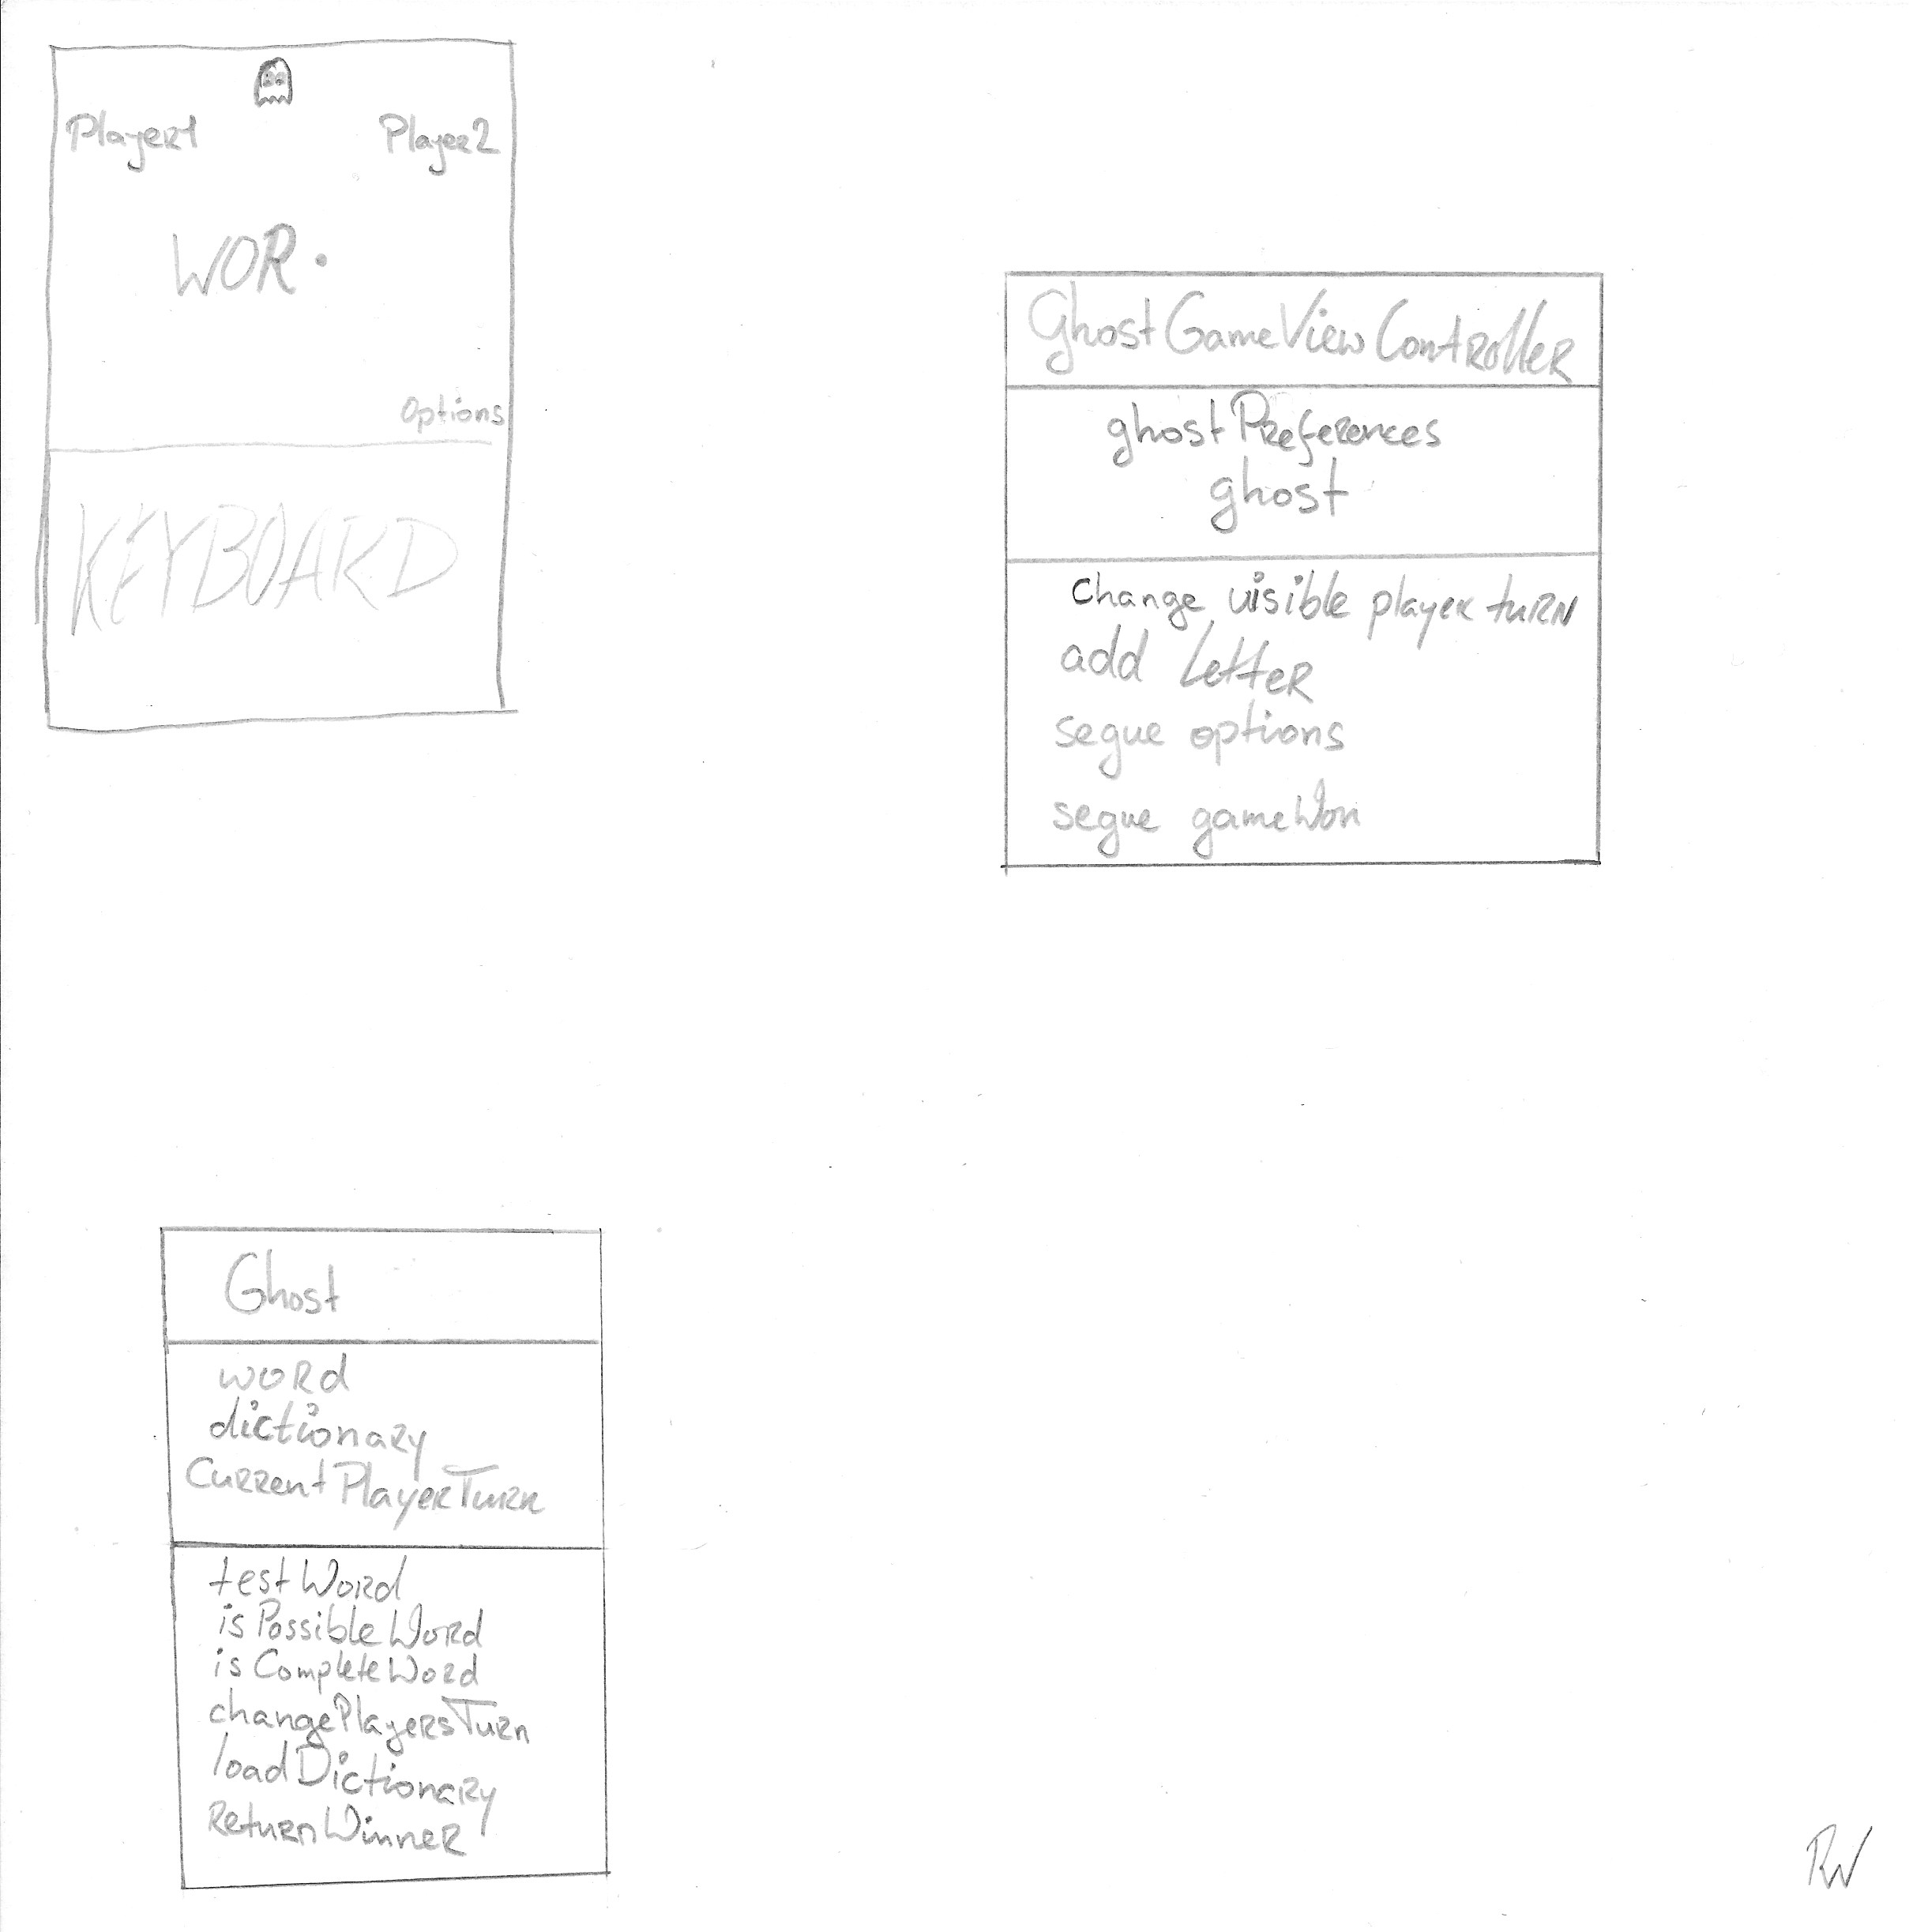 Player1 Player2
WOR.
Options
KEYBOARD
GhostGameViewController
ghostPreferences
ghost
change visible player turn
add Letter
segue options
segue gameWon
Ghost
word
dictionary
CurrentPlayerTurn
testWord
isPossibleWord
isCompleteWord
changePlayersTurn
loadDictionary
ReturnWinner
RW